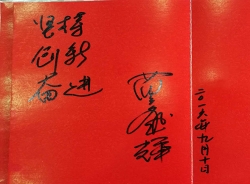 坚持
创新
奋进
二〇一六年九月十日